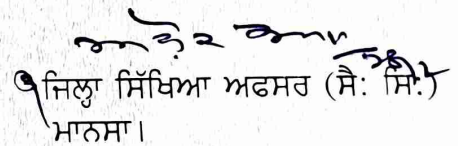 ਜਿਲ੍ਹਾ ਸਿੱਖਿਆ ਅਫਸਰ (ਸੈ: ਸਿ:)
ਮਾਨਸਾ।